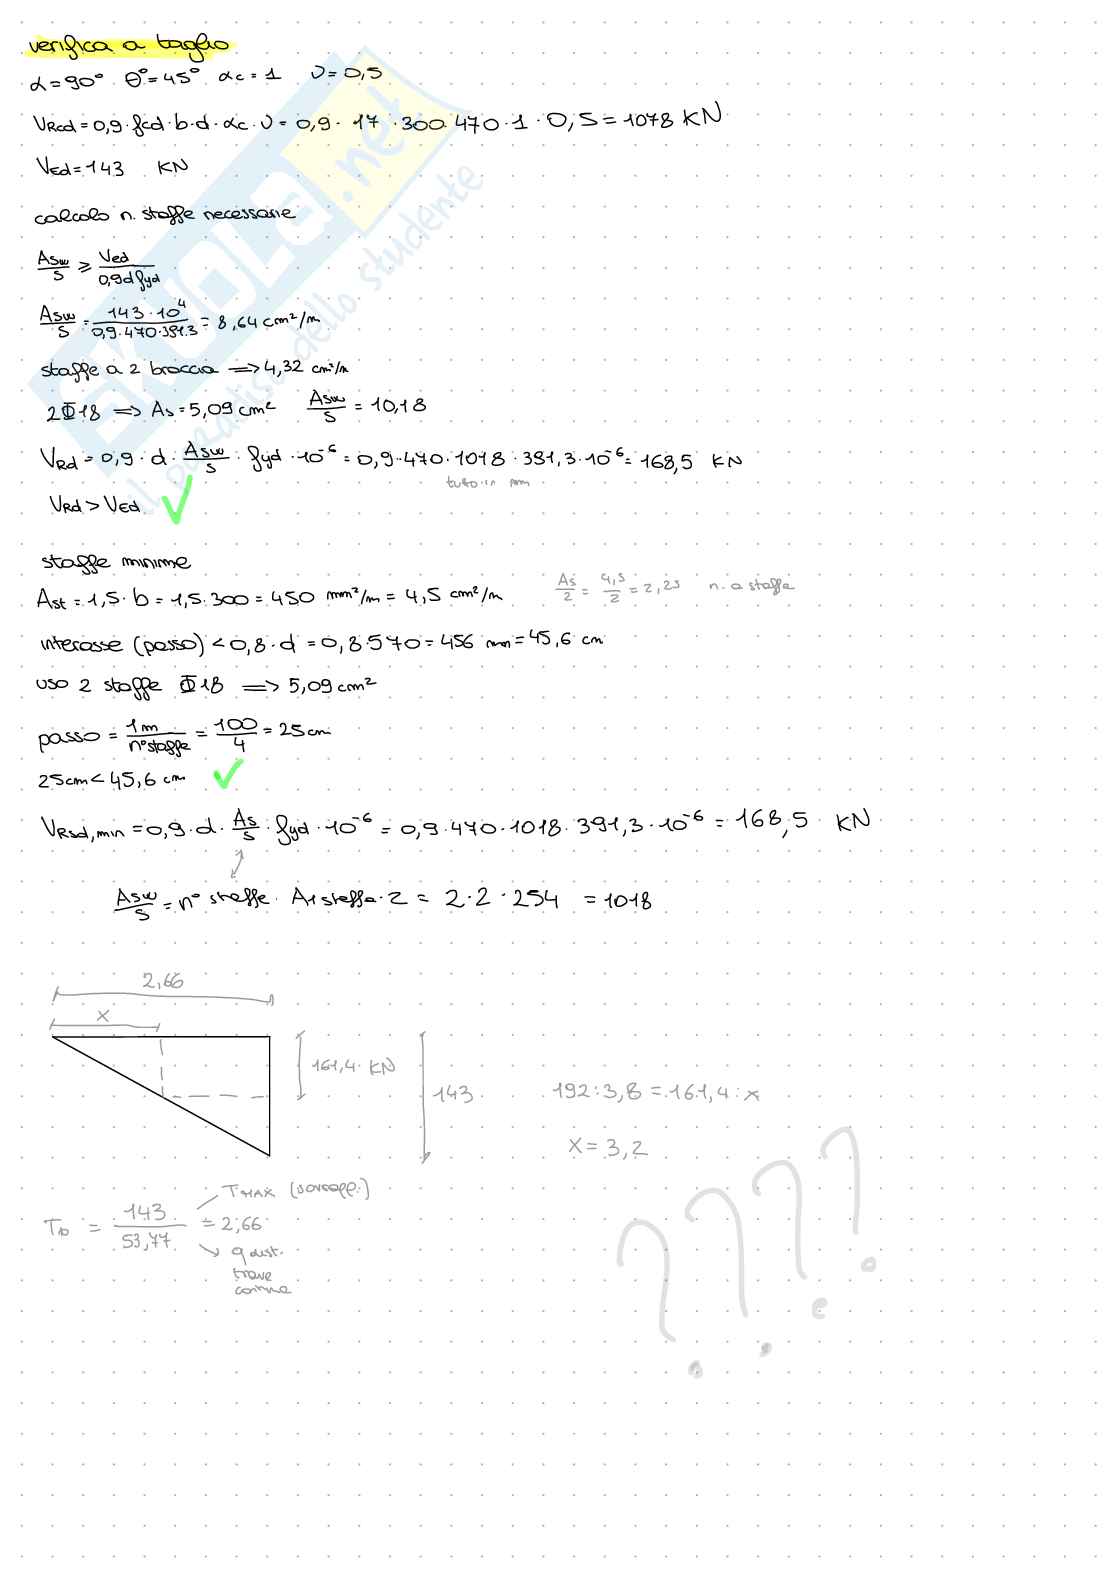 verifica a taglio
α = 90° θ° = 45° αc = 1 ν = 0,5
VRcd = 0,9 · fcd · b · d · αc · ν = 0,9 · 17 · 300 · 470 · 1 · 0,5 = 1078 KN
VEd = 143 KN
calcolo n. staffe necessarie
Asw/s ≥ Ved/0,9d fyd
Asw/s = 143 · 10⁴/0,9 · 470 · 391.3 = 8,64 cm²/m
staffe a 2 braccia => 4,32 cm²/m
2Φ18 => As = 5,09 cm² Asw/s = 10,18
VRd = 0,9 · d · Asw/s · fyd · 10⁻⁶ = 0,9 · 470 · 1018 · 391,3 · 10⁻⁶ = 168,5 KN
tutto in mm
VRd > VEd ✓
staffe minime
Ast = 1,5 · b = 1,5 · 300 = 450 mm²/m = 4,5 cm²/m As/2 = 4,5/2 = 2,25 n. a staffa
interasse (passo) < 0,8 · d = 0,8 · 570 = 456 mm = 45,6 cm
uso 2 staffe Φ18 => 5,09 cm²
passo = 1m/n° staffe = 100/4 = 25 cm
25cm < 45,6 cm ✓
VRsd,min = 0,9 · d · As/s · fyd · 10⁻⁶ = 0,9 · 470 · 1018 · 391,3 · 10⁻⁶ = 168,5 KN
Asw/s = n° staffe · A1 staffa · 2 = 2 · 2 · 254 = 1018
2,66
x
161,4 KN
143
192 : 3,8 = 161,4 : x
x = 3,2
TMAX (sovrapp.)
143/53,77 = 2,66
q dist.
trave
continua
? ? ? ?
SKUOLA.net
il paradiso dello studente